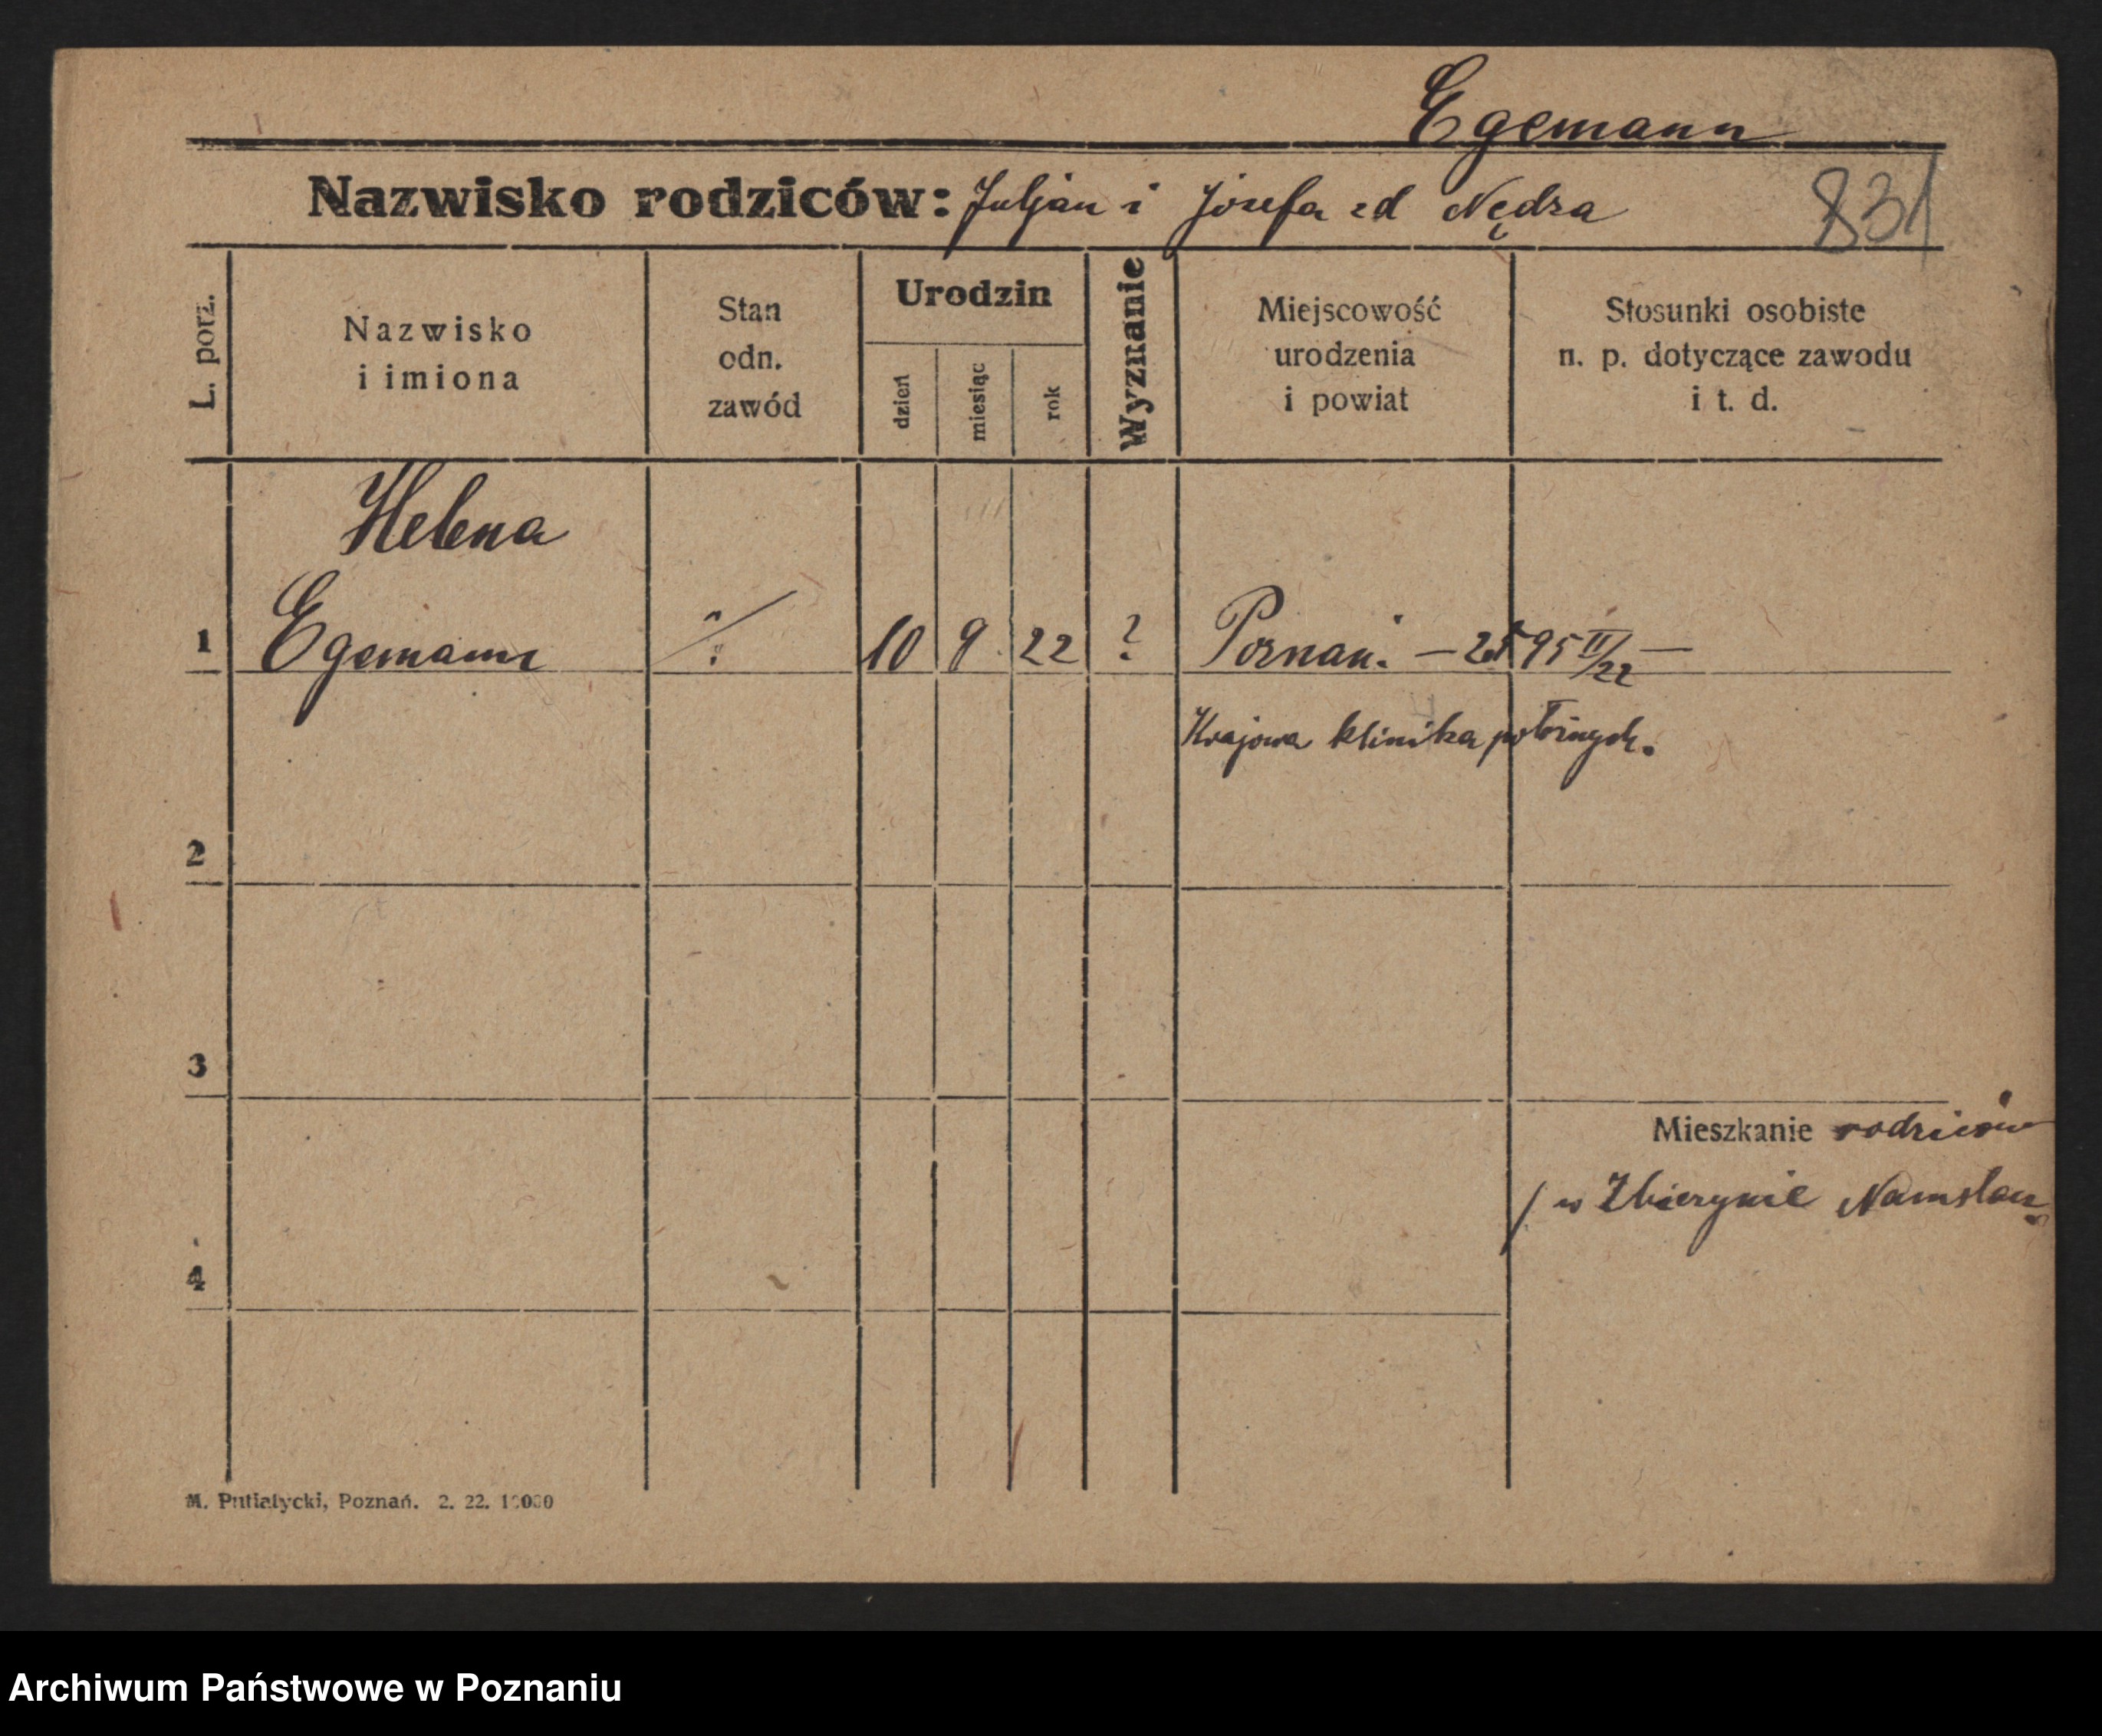 Egemann
Nazwisko rodziców: Juljan i Józefa zd Nędza
831
L. porz.
Nazwisko
i imiona
Stan
odn.
zawód
Urodzin
dzień
miesiąc
rok
Wyznanie
Miejscowość
urodzenia
i powiat
Stosunki osobiste
n. p. dotyczące zawodu
i t. d.
Helena
1 Egemann ./. 10 9. 22 ? Poznań. — 95 II/22 —
Krajowa klinika położnych.
2
3
Mieszkanie rodziców
/ w
4
M. Putiatycki, Poznań. 2. 22. 10000
Archiwum Państwowe w Poznaniu